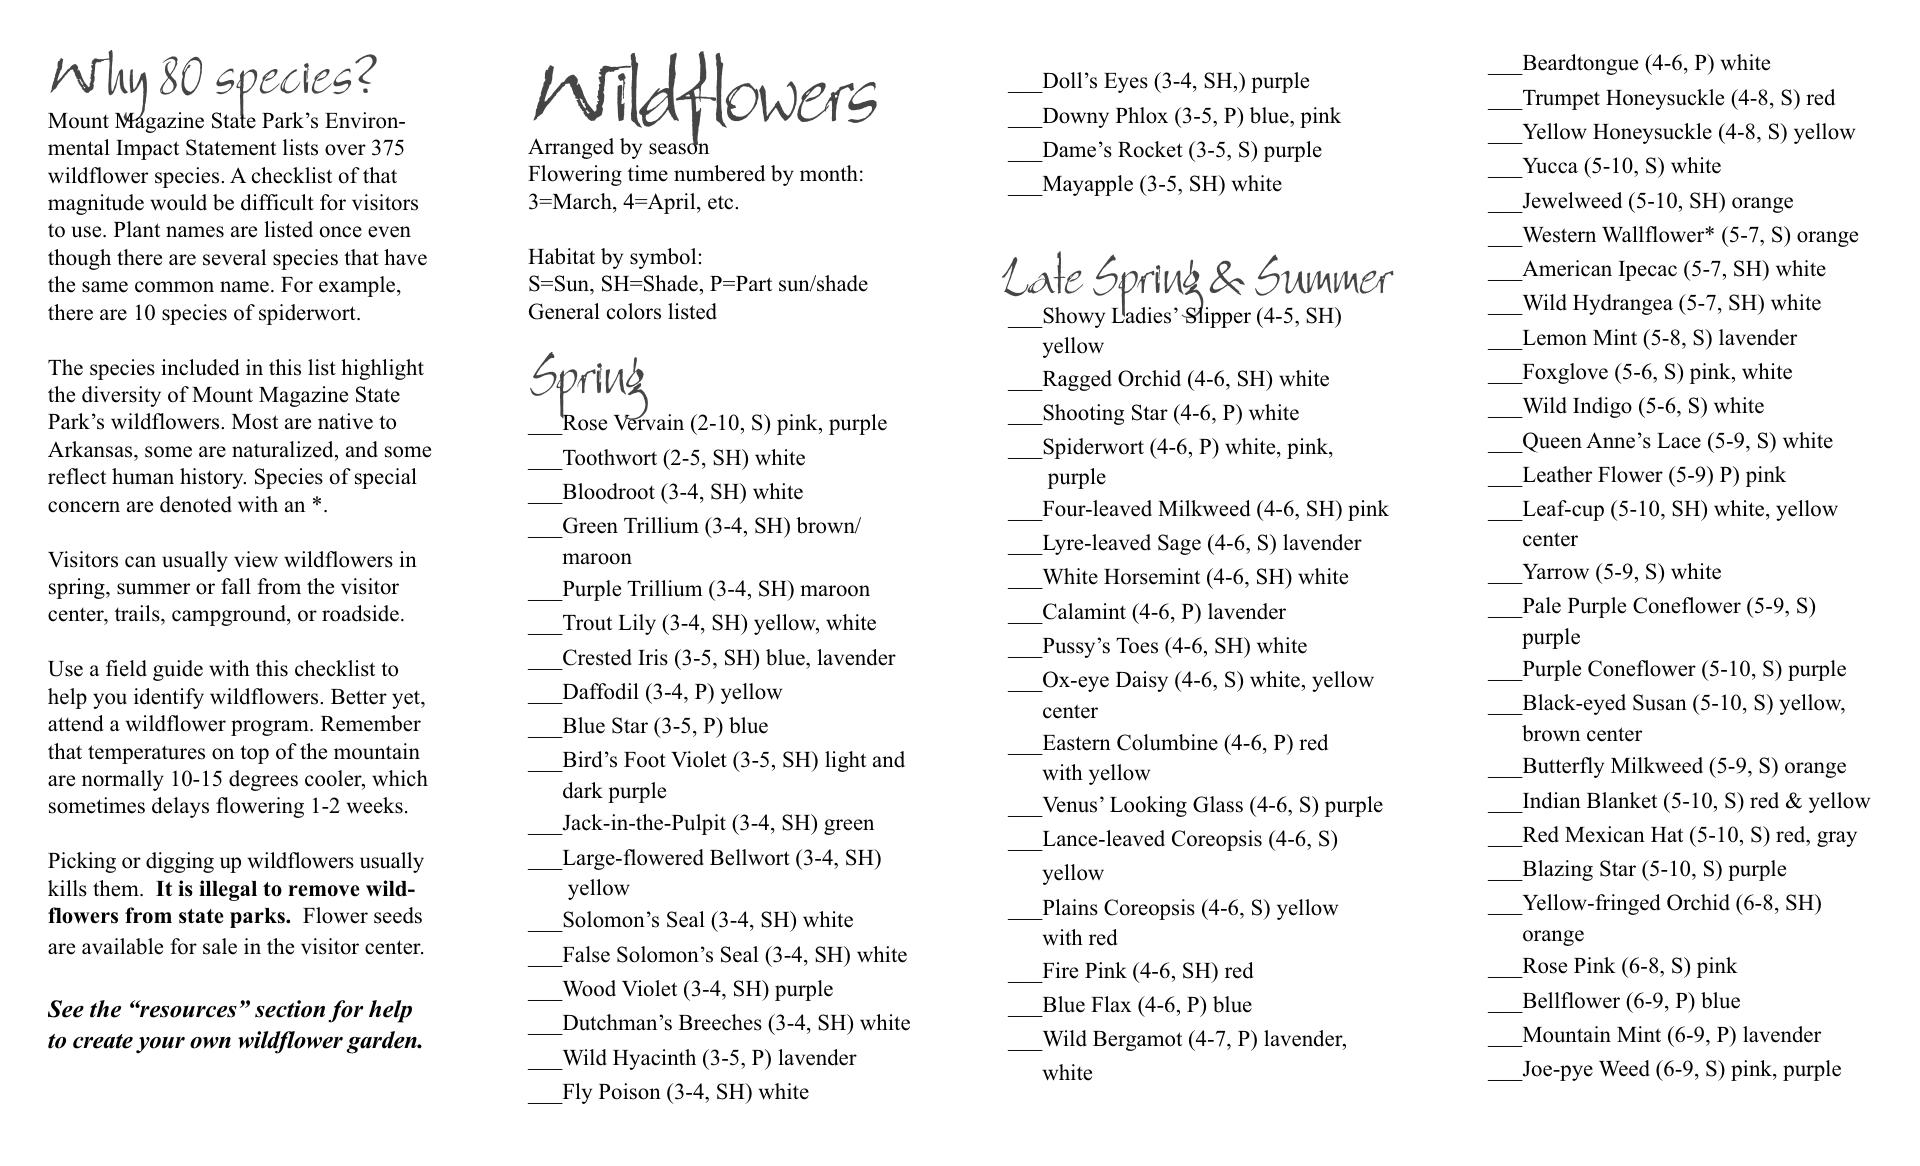 Why 80 species?
Mount Magazine State Park’s Environ-
mental Impact Statement lists over 375
wildflower species. A checklist of that
magnitude would be difficult for visitors
to use. Plant names are listed once even
though there are several species that have
the same common name. For example,
there are 10 species of spiderwort.
The species included in this list highlight
the diversity of Mount Magazine State
Park’s wildflowers. Most are native to
Arkansas, some are naturalized, and some
reflect human history. Species of special
concern are denoted with an *.
Visitors can usually view wildflowers in
spring, summer or fall from the visitor
center, trails, campground, or roadside.
Use a field guide with this checklist to
help you identify wildflowers. Better yet,
attend a wildflower program. Remember
that temperatures on top of the mountain
are normally 10-15 degrees cooler, which
sometimes delays flowering 1-2 weeks.
Picking or digging up wildflowers usually
kills them.  It is illegal to remove wild-
flowers from state parks.  Flower seeds
are available for sale in the visitor center.
See the “resources” section for help
to create your own wildflower garden.
Wildflowers
Arranged by season
Flowering time numbered by month:
3=March, 4=April, etc.
Habitat by symbol:
S=Sun, SH=Shade, P=Part sun/shade
General colors listed
Spring
___Rose Vervain (2-10, S) pink, purple
___Toothwort (2-5, SH) white
___Bloodroot (3-4, SH) white
___Green Trillium (3-4, SH) brown/
maroon
___Purple Trillium (3-4, SH) maroon
___Trout Lily (3-4, SH) yellow, white
___Crested Iris (3-5, SH) blue, lavender
___Daffodil (3-4, P) yellow
___Blue Star (3-5, P) blue
___Bird’s Foot Violet (3-5, SH) light and
dark purple
___Jack-in-the-Pulpit (3-4, SH) green
___Large-flowered Bellwort (3-4, SH)
yellow
___Solomon’s Seal (3-4, SH) white
___False Solomon’s Seal (3-4, SH) white
___Wood Violet (3-4, SH) purple
___Dutchman’s Breeches (3-4, SH) white
___Wild Hyacinth (3-5, P) lavender
___Fly Poison (3-4, SH) white
___Doll’s Eyes (3-4, SH,) purple
___Downy Phlox (3-5, P) blue, pink
___Dame’s Rocket (3-5, S) purple
___Mayapple (3-5, SH) white
Late Spring & Summer
___Showy Ladies’ Slipper (4-5, SH)
yellow
___Ragged Orchid (4-6, SH) white
___Shooting Star (4-6, P) white
___Spiderwort (4-6, P) white, pink,
purple
___Four-leaved Milkweed (4-6, SH) pink
___Lyre-leaved Sage (4-6, S) lavender
___White Horsemint (4-6, SH) white
___Calamint (4-6, P) lavender
___Pussy’s Toes (4-6, SH) white
___Ox-eye Daisy (4-6, S) white, yellow
center
___Eastern Columbine (4-6, P) red
with yellow
___Venus’ Looking Glass (4-6, S) purple
___Lance-leaved Coreopsis (4-6, S)
yellow
___Plains Coreopsis (4-6, S) yellow
with red
___Fire Pink (4-6, SH) red
___Blue Flax (4-6, P) blue
___Wild Bergamot (4-7, P) lavender,
white
___Beardtongue (4-6, P) white
___Trumpet Honeysuckle (4-8, S) red
___Yellow Honeysuckle (4-8, S) yellow
___Yucca (5-10, S) white
___Jewelweed (5-10, SH) orange
___Western Wallflower* (5-7, S) orange
___American Ipecac (5-7, SH) white
___Wild Hydrangea (5-7, SH) white
___Lemon Mint (5-8, S) lavender
___Foxglove (5-6, S) pink, white
___Wild Indigo (5-6, S) white
___Queen Anne’s Lace (5-9, S) white
___Leather Flower (5-9) P) pink
___Leaf-cup (5-10, SH) white, yellow
center
___Yarrow (5-9, S) white
___Pale Purple Coneflower (5-9, S)
purple
___Purple Coneflower (5-10, S) purple
___Black-eyed Susan (5-10, S) yellow,
brown center
___Butterfly Milkweed (5-9, S) orange
___Indian Blanket (5-10, S) red & yellow
___Red Mexican Hat (5-10, S) red, gray
___Blazing Star (5-10, S) purple
___Yellow-fringed Orchid (6-8, SH)
orange
___Rose Pink (6-8, S) pink
___Bellflower (6-9, P) blue
___Mountain Mint (6-9, P) lavender
___Joe-pye Weed (6-9, S) pink, purple